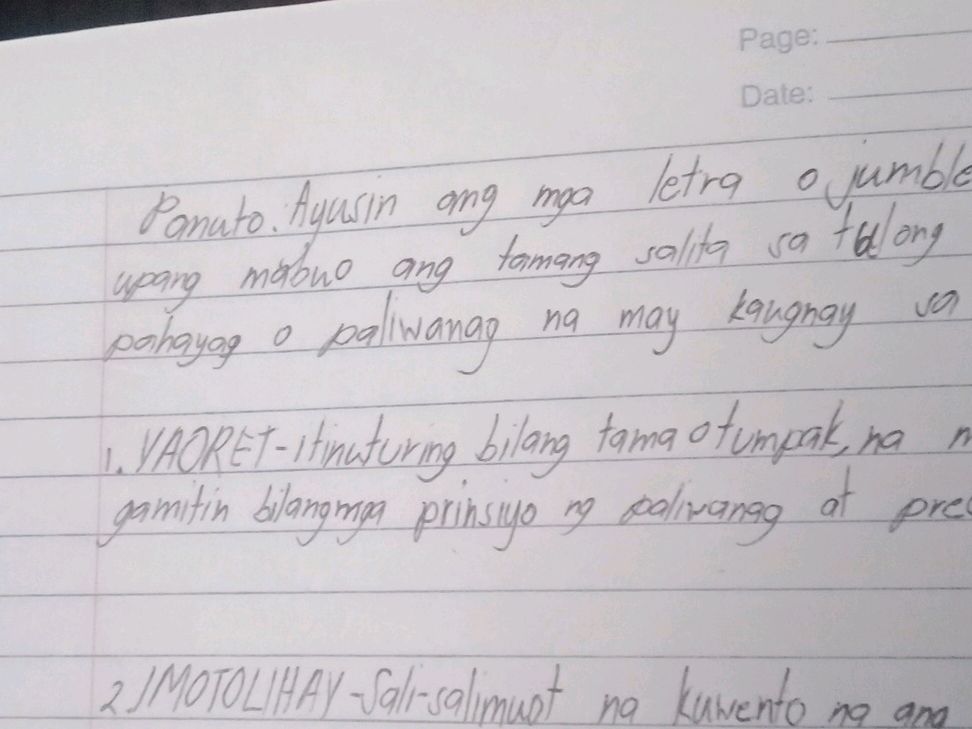 Page:
Date:
Panuto. Ayusin ang mga letra o jumble
upang mabuo ang tamang salita sa tulong
pahayag o paliwanag na may kaugnay sa
1. YAORET-itinuturing bilang tama o tumpak, na
gamitin bilang mga prinsiyo ng paliwanag at
2. IMOTOLIHAY-Sali-salimuot na kuwento na ang